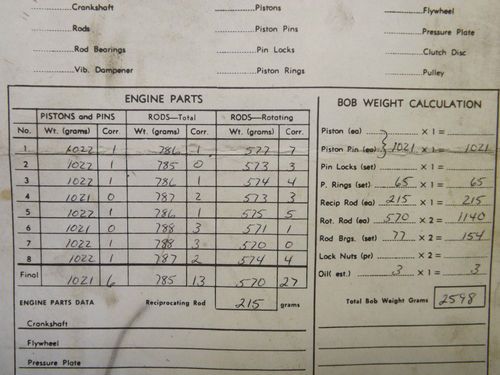 Crankshaft Pistons Flywheel
Rods Piston Pins Pressure Plate
Rod Bearings Pin Locks Clutch Disc
Vib. Dampener Piston Rings Pulley
ENGINE PARTS
PISTONS and PINS RODS—Total RODS—Rotating
No. Wt. (grams) Corr. Wt. (grams) Corr. Wt. (grams) Corr.
1 1022 1 786 1 577 7
2 1022 1 785 0 573 3
3 1022 1 786 1 574 4
4 1021 0 787 2 573 3
5 1022 1 786 1 575 5
6 1021 0 788 3 571 1
7 1022 1 788 3 570 0
8 1022 1 787 2 574 4
Final 1021 6 785 13 570 27
ENGINE PARTS DATA Reciprocating Rod 215 grams
Crankshaft
Flywheel
Pressure Plate
BOB WEIGHT CALCULATION
Piston (ea) X 1 =
Piston Pin (ea) 1021 X 1 = 1021
Pin Locks (set) X 1 =
P. Rings (set) 65 X 1 = 65
Recip Rod (ea) 215 X 1 = 215
Rot. Rod (ea) 570 X 2 = 1140
Rod Brgs. (set) 77 X 2 = 154
Lock Nuts (pr) X 2 =
Oil( est.) 3 X 1 = 3
Total Bob Weight Grams 2598